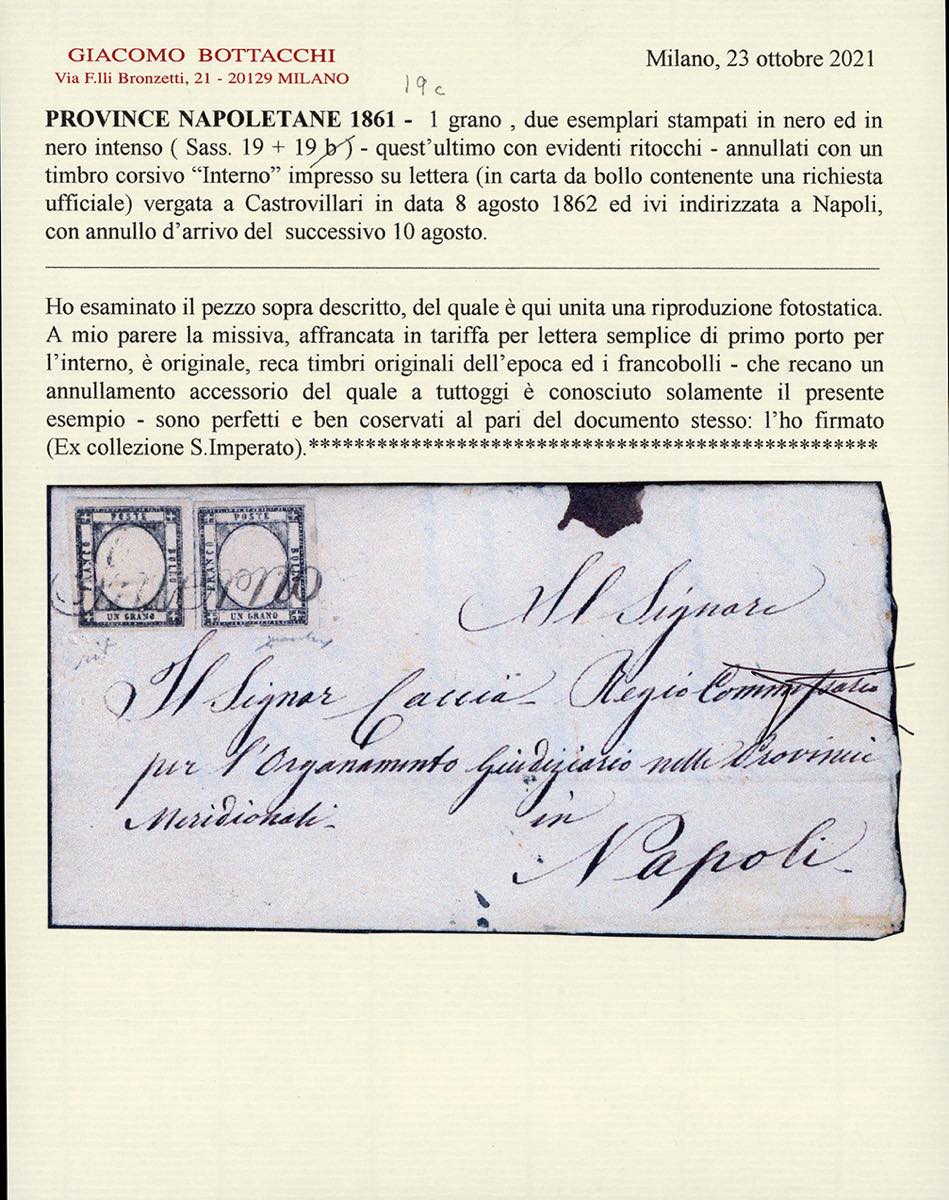 GIACOMO BOTTACCHI
Via F.lli Bronzetti, 21 - 20129 MILANO
Milano, 23 ottobre 2021
19c
PROVINCE NAPOLETANE 1861 - 1 grano , due esemplari stampati in nero ed in
nero intenso ( Sass. 19 + 19 b ) - quest’ultimo con evidenti ritocchi - annullati con un
timbro corsivo “Interno” impresso su lettera (in carta da bollo contenente una richiesta
ufficiale) vergata a Castrovillari in data 8 agosto 1862 ed ivi indirizzata a Napoli,
con annullo d’arrivo del successivo 10 agosto.
Ho esaminato il pezzo sopra descritto, del quale è qui unita una riproduzione fotostatica.
A mio parere la missiva, affrancata in tariffa per lettera semplice di primo porto per
l’interno, è originale, reca timbri originali dell’epoca ed i francobolli - che recano un
annullamento accessorio del quale a tuttoggi è conosciuto solamente il presente
esempio - sono perfetti e ben coservati al pari del documento stesso: l’ho firmato
(Ex collezione S.Imperato).**************************************************
POSTE
FRANCO
BOLLO
UN GRANO
POSTE
FRANCO
BOLLO
UN GRANO
Al Signore
Il Signor Caccia Regio Commissario
per l'Organamento Giudiziario nelle Provincie
Meridionali - in
Napoli